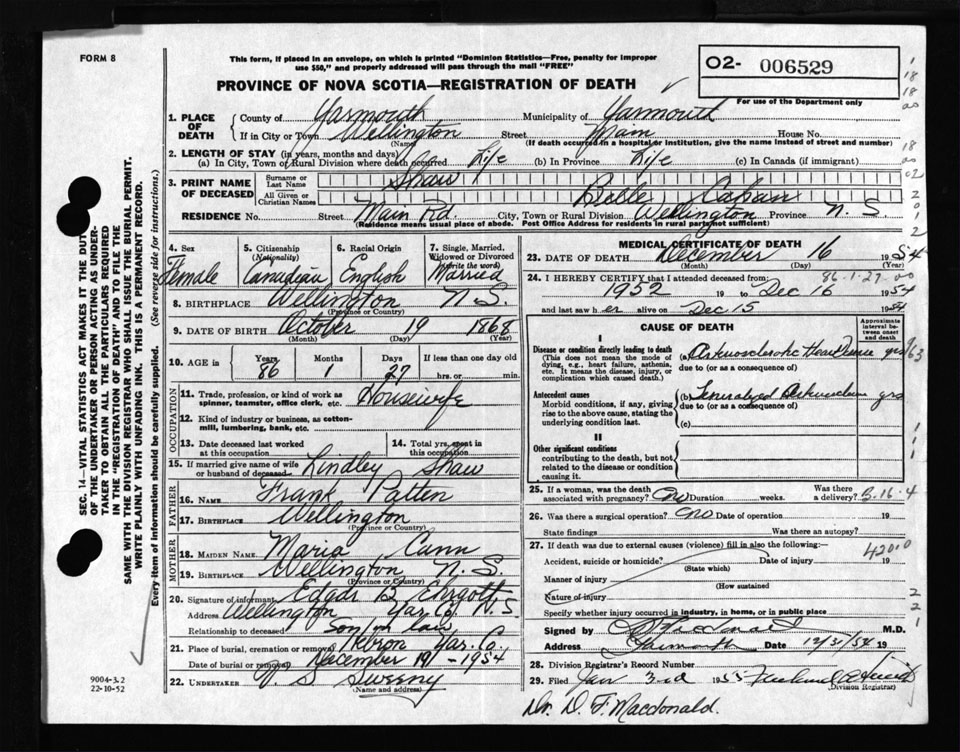 FORM 8
This form, if placed in an envelope, on which is printed "Dominion Statistics—Free, penalty for improper
use $50," and properly addressed will pass through the mail "FREE"
O2- 006529
PROVINCE OF NOVA SCOTIA—REGISTRATION OF DEATH
For use of the Department only
1. PLACE OF DEATH County of Yarmouth Municipality of Yarmouth
If in City or Town Wellington Street Main House No.
(Name) (If death occurred in a hospital or institution, give the name instead of street and number)
2. LENGTH OF STAY (in years, months and days)
(a) In City, Town or Rural Division where death occurred Life (b) In Province Life (c) In Canada (if immigrant)
3. PRINT NAME OF DECEASED Surname or Last Name Shaw
All Given or Christian Names Belle
RESIDENCE No. Street Main Rd. City, Town or Rural Division Wellington Province N. S
(Residence means usual place of abode. Post Office Address for residents in rural parts not sufficient)
4. Sex 5. Citizenship (Nationality) 6. Racial Origin 7. Single, Married, Widowed or Divorced (Write the word)
Female Canadian English Married
8. BIRTHPLACE Wellington N.S.
(Province or Country)
9. DATE OF BIRTH October 19 1868
(Month) (Day) (Year)
10. AGE in Years Months Days If less than one day old
86 1 27 hrs. or min.
OCCUPATION
11. Trade, profession, or kind of work as spinner, teamster, office clerk, etc. Housewife
12. Kind of industry or business, as cotton-mill, lumbering, bank, etc.
13. Date deceased last worked at this occupation 14. Total yrs. spent in this occupation
15. If married give name of wife or husband of deceased Lindley Shaw
FATHER
16. NAME Frank Patten
17. BIRTHPLACE Wellington
(Province or Country)
MOTHER
18. MAIDEN NAME Maria Cann
19. BIRTHPLACE Wellington N. S.
(Province or Country)
20. Signature of informant Edgar B.
Address Wellington Yar. Co. N. S
Relationship to deceased Son in law
21. Place of burial, cremation or removal Hebron Yar. Co.
Date of burial or removal December 19 - 1954
22. UNDERTAKER V. S. Sweeny
(Name and address)
MEDICAL CERTIFICATE OF DEATH
23. DATE OF DEATH December 16 1954
(Month) (Day) (Year)
86-1-27
24. I HEREBY CERTIFY that I attended deceased from:
1952 19 to Dec 16 1954
and last saw her alive on Dec 15 1954
CAUSE OF DEATH
Approximate interval between onset and death
I
Disease or condition directly leading to death
(This does not mean the mode of dying, e.g., heart failure, asthenia, etc. It means the disease, injury, or complication which caused death.)
(a) Arteriosclerotic Heart Disease yrs
due to (or as a consequence of)
Antecedent causes
Morbid conditions, if any, giving rise to the above cause, stating the underlying condition last.
(b) Generalized yrs
due to (or as a consequence of)
(c)
II
Other significant conditions
contributing to the death, but not related to the disease or condition causing it.
25. If a woman, was the death associated with pregnancy? No Duration weeks. Was there a delivery? 3-16-4
26. Was there a surgical operation? No Date of operation 19
State findings Was there an autopsy?
27. If death was due to external causes (violence) fill in also the following:—
4200
Accident, suicide or homicide? Date of injury 19
(State which)
Manner of injury
(How sustained
Nature of injury
Specify whether injury occurred in industry, in home, or in public place
Signed by M.D.
Address Yarmouth Date 12/31/54 19
28. Division Registrar's Record Number
29. Filed Jan 3rd 1955
(Division Registrar)
Dr. D. F. Macdonald.
SEC. 14—VITAL STATISTICS ACT MAKES IT THE DUTY
OF THE UNDERTAKER OR PERSON ACTING AS UNDER-
TAKER TO OBTAIN ALL THE PARTICULARS REQUIRED
IN THE "REGISTRATION OF DEATH" AND TO FILE THE
SAME WITH THE DIVISION REGISTRAR WHO SHALL ISSUE THE BURIAL PERMIT.
WRITE PLAINLY WITH UNFADING INK. THIS IS A PERMANENT RECORD.
Every item of information should be carefully supplied. (See reverse side for instructions.)
9004-3.2
22-10-52